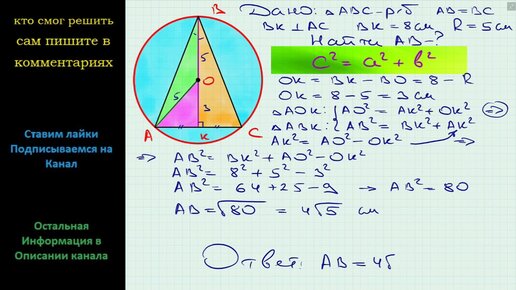 кто смог решить
сам пишите в
комментариях
Ставим лайки
Подписываемся на
Канал
Остальная
Информация в
Описании канала
B
5
5
O
3
A
K
C
Дано: △ABC - р/б AB = BC
BK ⊥ AC BK = 8 см R = 5 см
Найти AB - ?
c² = a² + b²
OK = BK - BO = 8 - R
OK = 8 - 5 = 3 см
△AOK: { AO² = AK² + OK² ⇒
△ABK: { AB² = BK² + AK²
AK² = AO² - OK²
⇒ AB² = BK² + AO² - OK²
AB² = 8² + 5² - 3²
AB² = 64 + 25 - 9 → AB² = 80
AB = √80 = 4√5 см
Ответ: AB = 4√